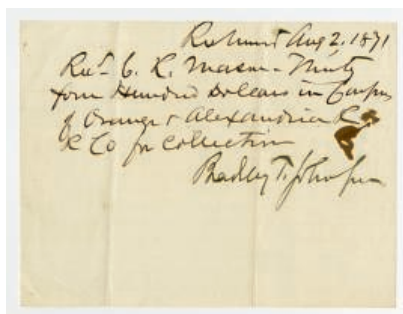 Richmond Aug 2. 1871
Rec'd C. R. Mason - Thirty
four Hundred Dollars in Coupons
of Orange & Alexandria R
R Co for Collection
Bradley T. Johnson